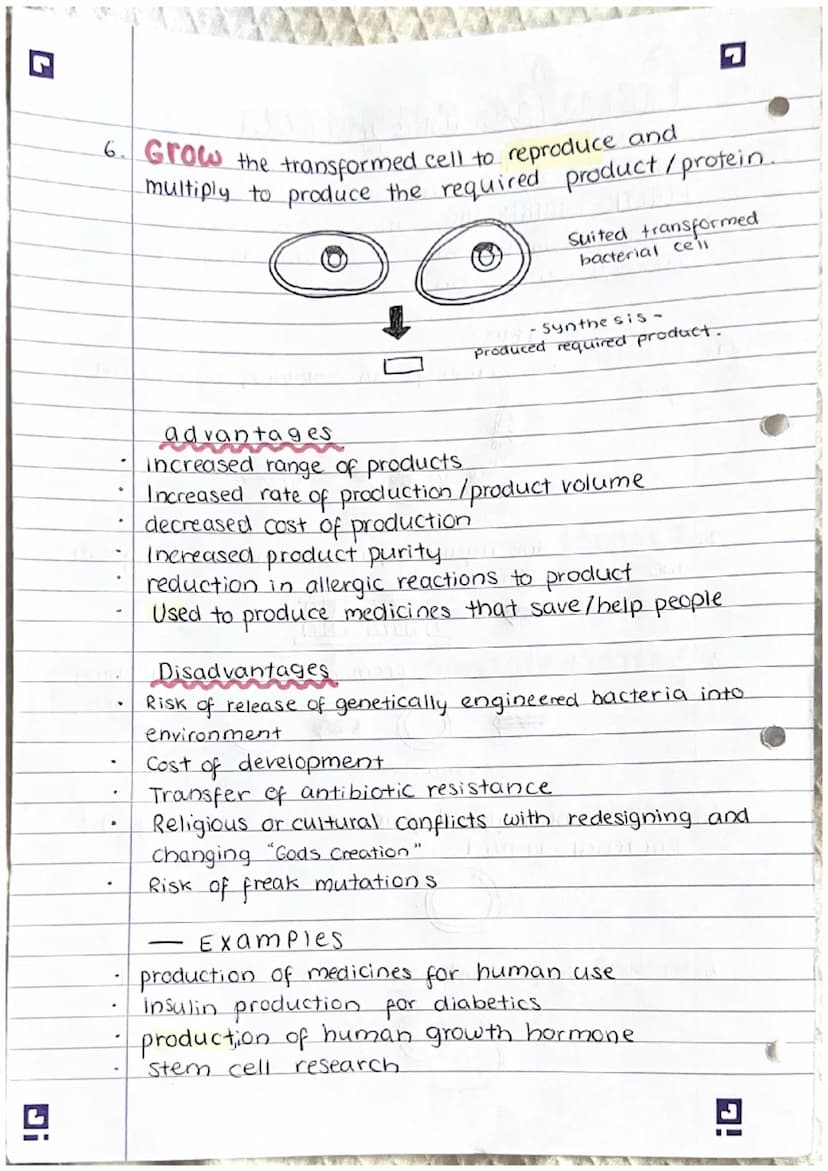 6. Grow the transformed cell to reproduce and
multiply to produce the required product / protein.
Suited transformed
bacterial cell
- Synthesis -
produced required product.
advantages
• increased range of products
• Increased rate of production / product volume
• decreased cost of production
- Increased product purity
• reduction in allergic reactions to product
- Used to produce medicines that save / help people
Disadvantages
• Risk of release of genetically engineered bacteria into
environment
• Cost of development
• Transfer of antibiotic resistance
• Religious or cultural conflicts with redesigning and
changing "Gods Creation"
• Risk of freak mutations
— Examples
• production of medicines for human use
• Insulin production for diabetics
• production of human growth hormone
- stem cell research